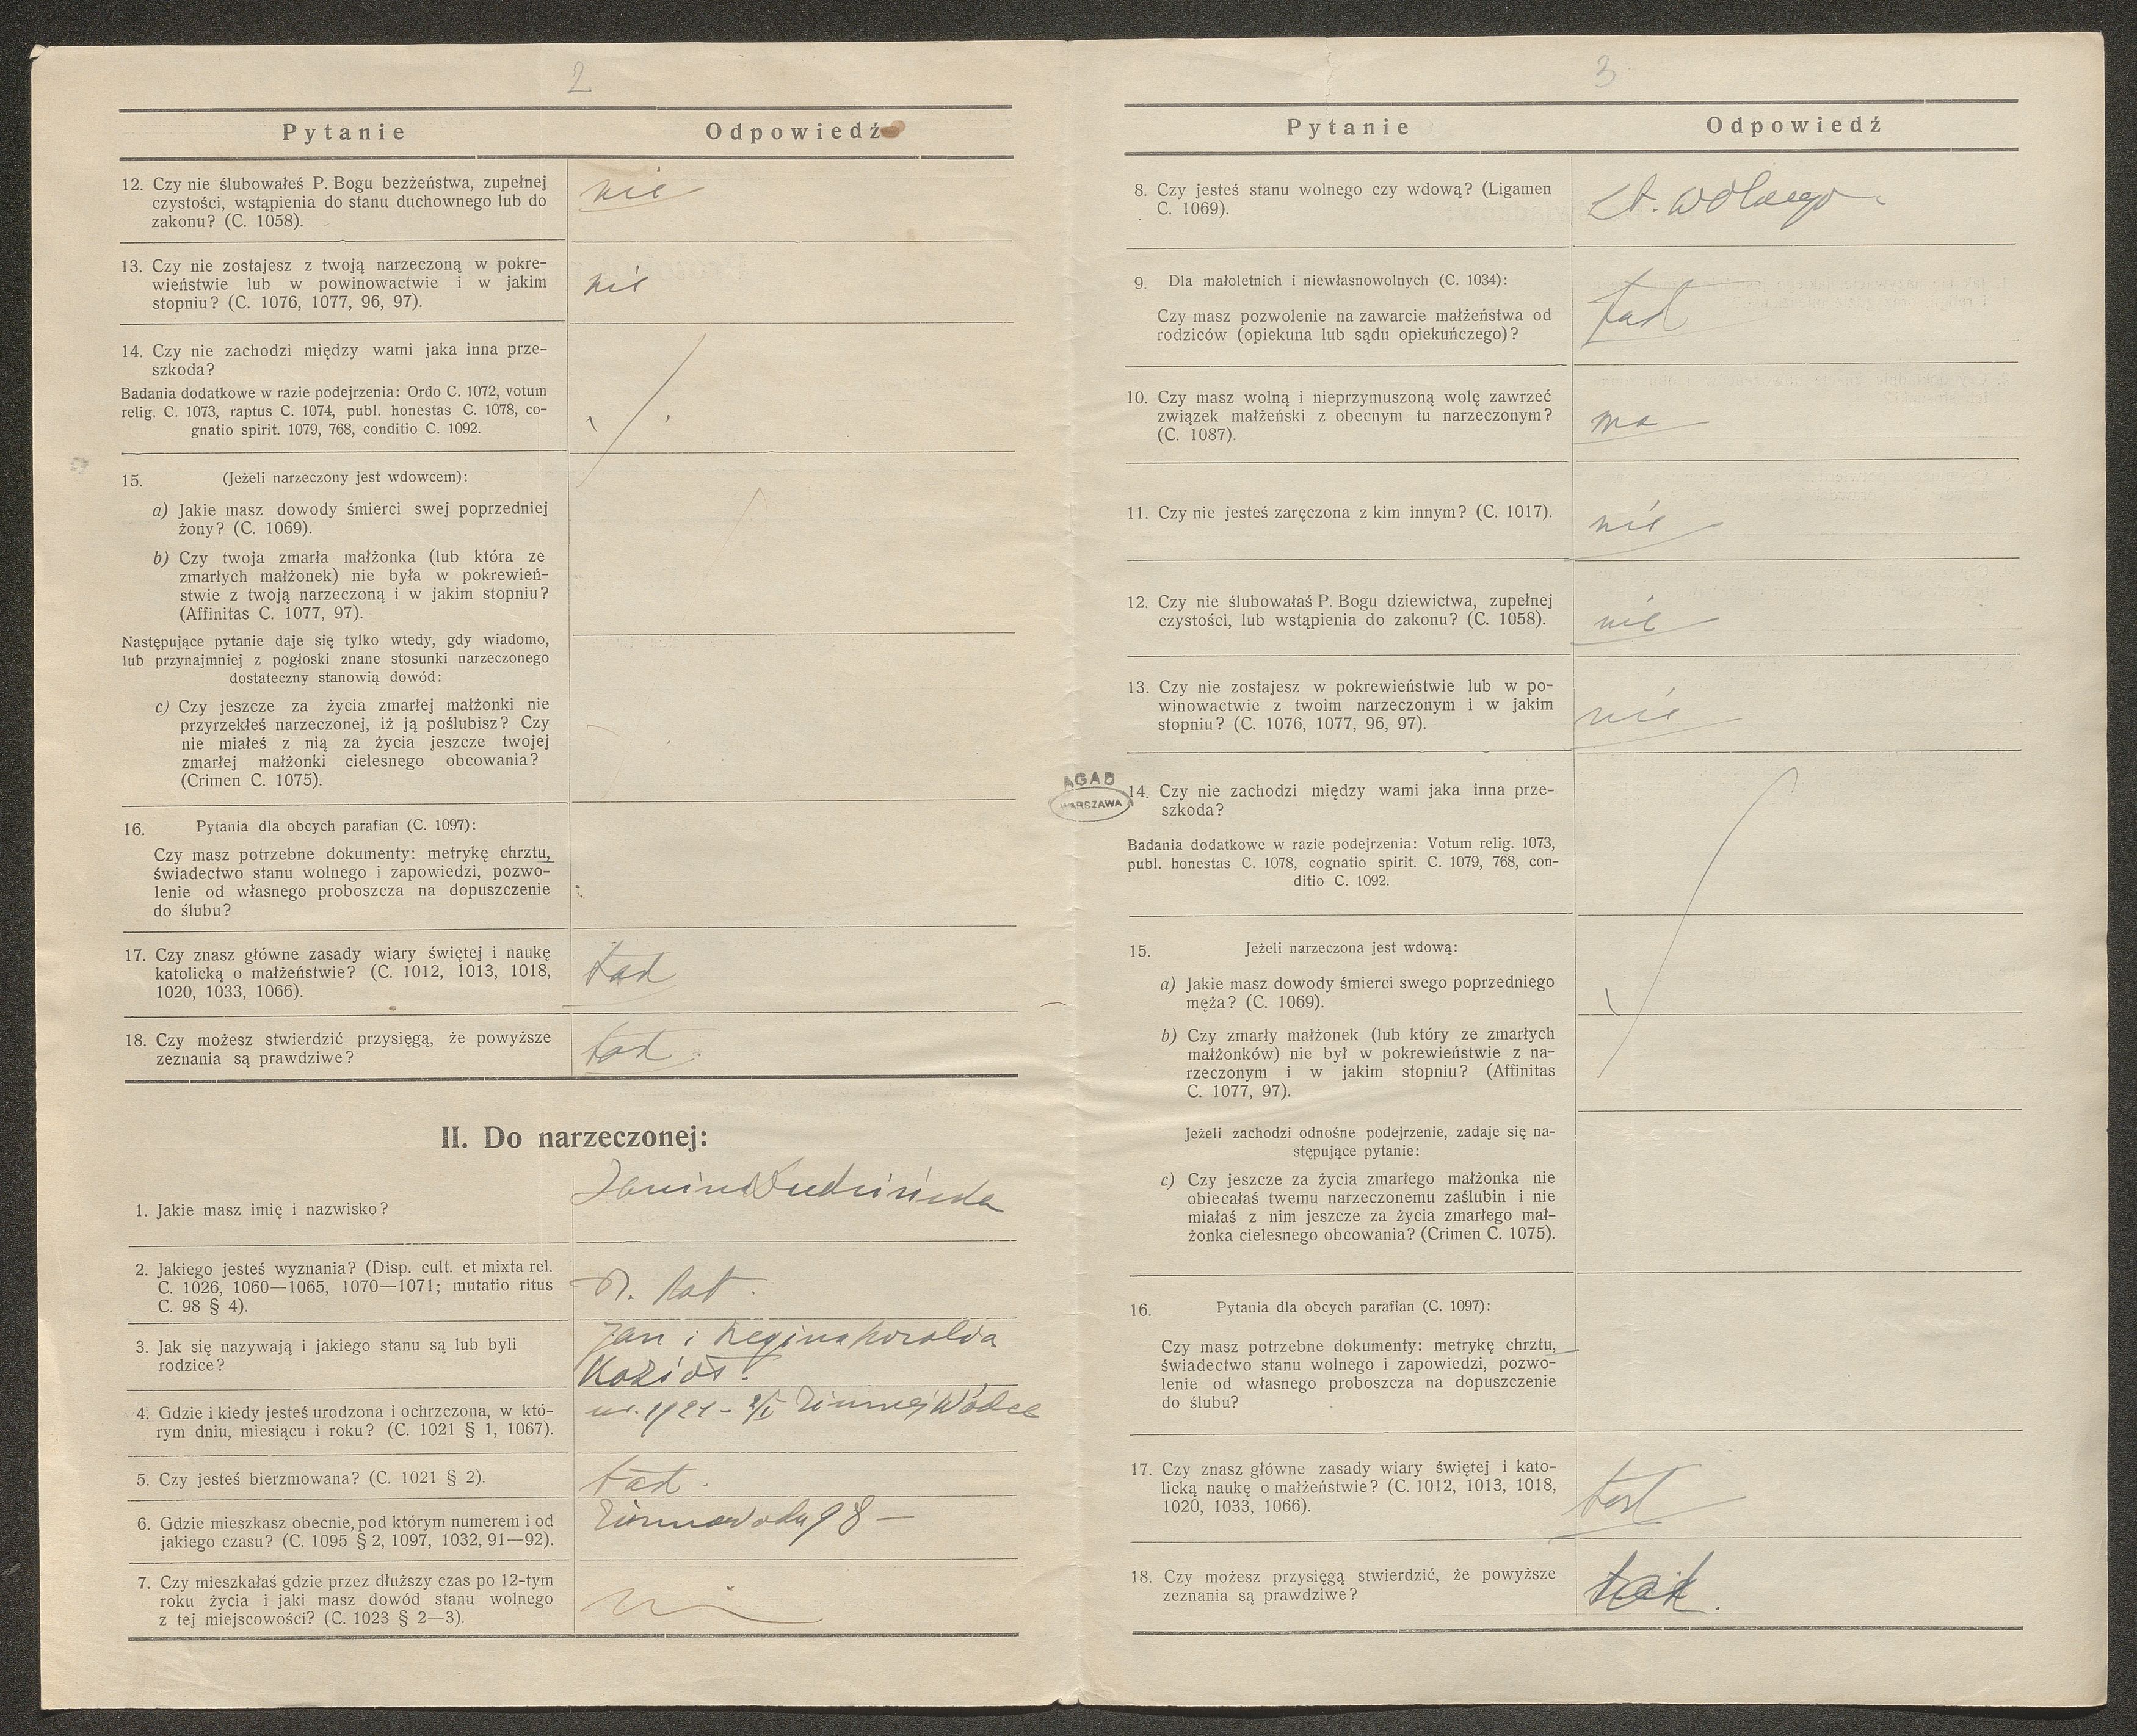 2
Pytanie
Odpowiedź
12. Czy nie ślubowałeś P. Bogu bezżeństwa, zupełnej
czystości, wstąpienia do stanu duchownego lub do
zakonu? (C. 1058).
nie
13. Czy nie zostajesz z twoją narzeczoną w pokre-
wieństwie lub w powinowactwie i w jakim
stopniu? (C. 1076, 1077, 96, 97).
nie
14. Czy nie zachodzi między wami jaka inna prze-
szkoda?
Badania dodatkowe w razie podejrzenia: Ordo C. 1072, votum
relig. C. 1073, raptus C. 1074, publ. honestas C. 1078, co-
gnatio spirit. 1079, 768, conditio C. 1092.
15. (Jeżeli narzeczony jest wdowcem):
a) Jakie masz dowody śmierci swej poprzedniej
żony? (C. 1069).
b) Czy twoja zmarła małżonka (lub która ze
zmarłych małżonek) nie była w pokrewień-
stwie z twoją narzeczoną i w jakim stopniu?
(Affinitas C. 1077, 97).
Następujące pytanie daje się tylko wtedy, gdy wiadomo,
lub przynajmniej z pogłoski znane stosunki narzeczonego
dostateczny stanowią dowód:
c) Czy jeszcze za życia zmarłej małżonki nie
przyrzekłeś narzeczonej, iż ją poślubisz? Czy
nie miałeś z nią za życia jeszcze twojej
zmarłej małżonki cielesnego obcowania?
(Crimen C. 1075).
16. Pytania dla obcych parafian (C. 1097):
Czy masz potrzebne dokumenty: metrykę chrztu,
świadectwo stanu wolnego i zapowiedzi, pozwo-
lenie od własnego proboszcza na dopuszczenie
do ślubu?
17. Czy znasz główne zasady wiary świętej i naukę
katolicką o małżeństwie? (C. 1012, 1013, 1018,
1020, 1033, 1066).
tak
18. Czy możesz stwierdzić przysięgą, że powyższe
zeznania są prawdziwe?
tak.
II. Do narzeczonej:
1. Jakie masz imię i nazwisko?
Janina
2. Jakiego jesteś wyznania? (Disp. cult. et mixta rel.
C. 1026, 1060—1065, 1070—1071; mutatio ritus
C. 98 § 4).
R. kat.
3. Jak się nazywają i jakiego stanu są lub byli
rodzice?
Jan i Regina
Kozioł.
4. Gdzie i kiedy jesteś urodzona i ochrzczona, w któ-
rym dniu, miesiącu i roku? (C. 1021 § 1, 1067).
ur. 1921 - Zimnej Wódce
5. Czy jesteś bierzmowana? (C. 1021 § 2).
tak.
6. Gdzie mieszkasz obecnie, pod którym numerem i od
jakiego czasu? (C. 1095 § 2, 1097, 1032, 91—92).
Zimnawoda 98 —
7. Czy mieszkałaś gdzie przez dłuższy czas po 12-tym
roku życia i jaki masz dowód stanu wolnego
z tej miejscowości? (C. 1023 § 2—3).
nie
3
Pytanie
Odpowiedź
8. Czy jesteś stanu wolnego czy wdową? (Ligamen
C. 1069).
st. wolnego.
9. Dla małoletnich i niewłasnowolnych (C. 1034):
Czy masz pozwolenie na zawarcie małżeństwa od
rodziców (opiekuna lub sądu opiekuńczego)?
tak
10. Czy masz wolną i nieprzymuszoną wolę zawrzeć
związek małżeński z obecnym tu narzeczonym?
(C. 1087).
ma
11. Czy nie jesteś zaręczona z kim innym? (C. 1017).
nie
12. Czy nie ślubowałaś P. Bogu dziewictwa, zupełnej
czystości, lub wstąpienia do zakonu? (C. 1058).
nie
13. Czy nie zostajesz w pokrewieństwie lub w po-
winowactwie z twoim narzeczonym i w jakim
stopniu? (C. 1076, 1077, 96, 97).
nie
AGAD
WARSZAWA
14. Czy nie zachodzi między wami jaka inna prze-
szkoda?
Badania dodatkowe w razie podejrzenia: Votum relig. 1073,
publ. honestas C. 1078, cognatio spirit. C. 1079, 768, con-
ditio C. 1092.
15. Jeżeli narzeczona jest wdową:
a) Jakie masz dowody śmierci swego poprzedniego
męża? (C. 1069).
b) Czy zmarły małżonek (lub który ze zmarłych
małżonków) nie był w pokrewieństwie z na-
rzeczonym i w jakim stopniu? (Affinitas
C. 1077, 97).
Jeżeli zachodzi odnośne podejrzenie, zadaje się na-
stępujące pytanie:
c) Czy jeszcze za życia zmarłego małżonka nie
obiecałaś twemu narzeczonemu zaślubin i nie
miałaś z nim jeszcze za życia zmarłego mał-
żonka cielesnego obcowania? (Crimen C. 1075).
16. Pytania dla obcych parafian (C. 1097):
Czy masz potrzebne dokumenty: metrykę chrztu,
świadectwo stanu wolnego i zapowiedzi, pozwo-
lenie od własnego proboszcza na dopuszczenie
do ślubu?
17. Czy znasz główne zasady wiary świętej i kato-
licką naukę o małżeństwie? (C. 1012, 1013, 1018,
1020, 1033, 1066).
tak
18. Czy możesz przysięgą stwierdzić, że powyższe
zeznania są prawdziwe?
tak.